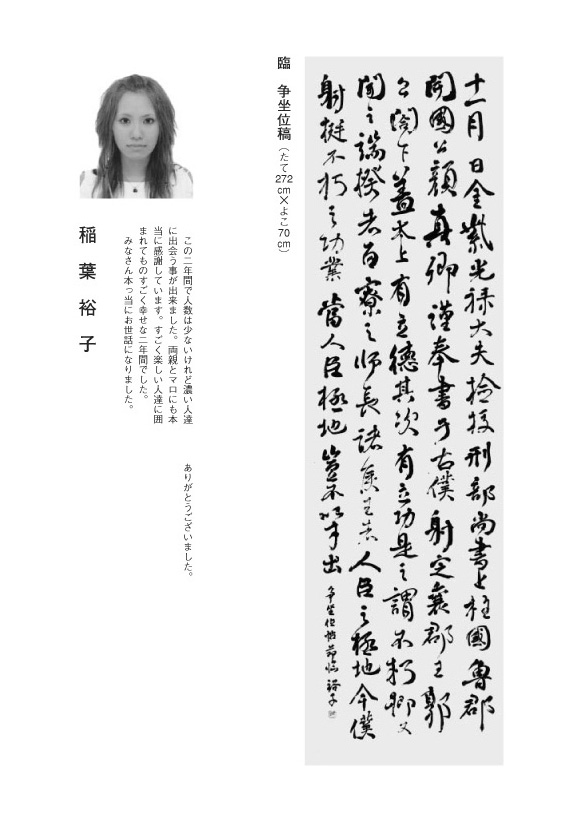 十一月 日金紫光禄大夫撿挍刑部尚書上柱國魯郡
開國公顔真卿謹奉書于右僕射定襄郡王郭
公閤下蓋太上有立德其次有立功是之謂不朽抑又
聞之端揆者百寮之師長諸侯王者人臣之極地今僕
射挺不朽之功業當人臣極地豈不以才出
争坐位帖節臨 裕子
臨 争坐位稿（たて272cm×よこ70cm）
この二年間で人数は少ないけれど濃い人達
に出会う事が出来ました。両親とマロにも本
当に感謝しています。すごく楽しい人達に囲
まれてものすごく幸せな二年間でした。
みなさん本っ当にお世話になりました。
ありがとうございました。
稲葉裕子